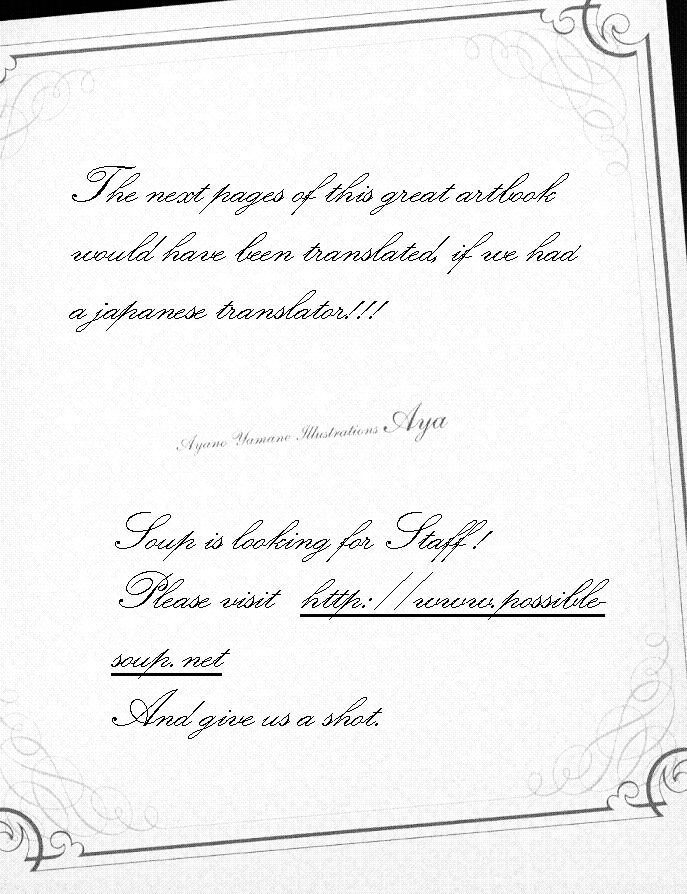 The next pages of this great artbook
would have been translated, if we had
a japanese translator!!!
Ayano Yamane Illustrations Aya
Soup is looking for Staff!
Please visit http://www.possible-
soup.net
And give us a shot.